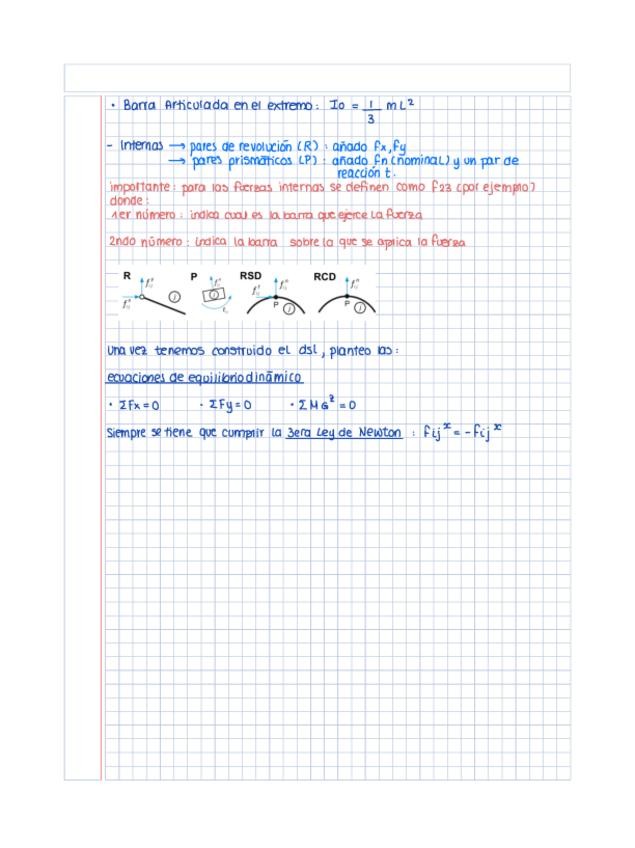 • Barra Articulada en el extremo: Io = 1/3 mL²
- Internas → pares de revolución (R) : añado fx, fy
→ pares prismáticos (P) : añado fn (nominal) y un par de
reacción t.
importante: para las fuerzas internas se definen como f23 (por ejemplo)
donde:
1er número : indica cual es la barra que ejerce la fuerza
2ndo número : indica la barra sobre la que se aplica la fuerza
R P RSD RCD
P P
Una vez tenemos construido el dsl, planteo las:
ecuaciones de equilibrio dinámico
• ΣFx = 0 • ΣFy = 0 • ΣMG² = 0
Siempre se tiene que cumplir la 3era Ley de Newton : Fijˣ = -Fijˣ